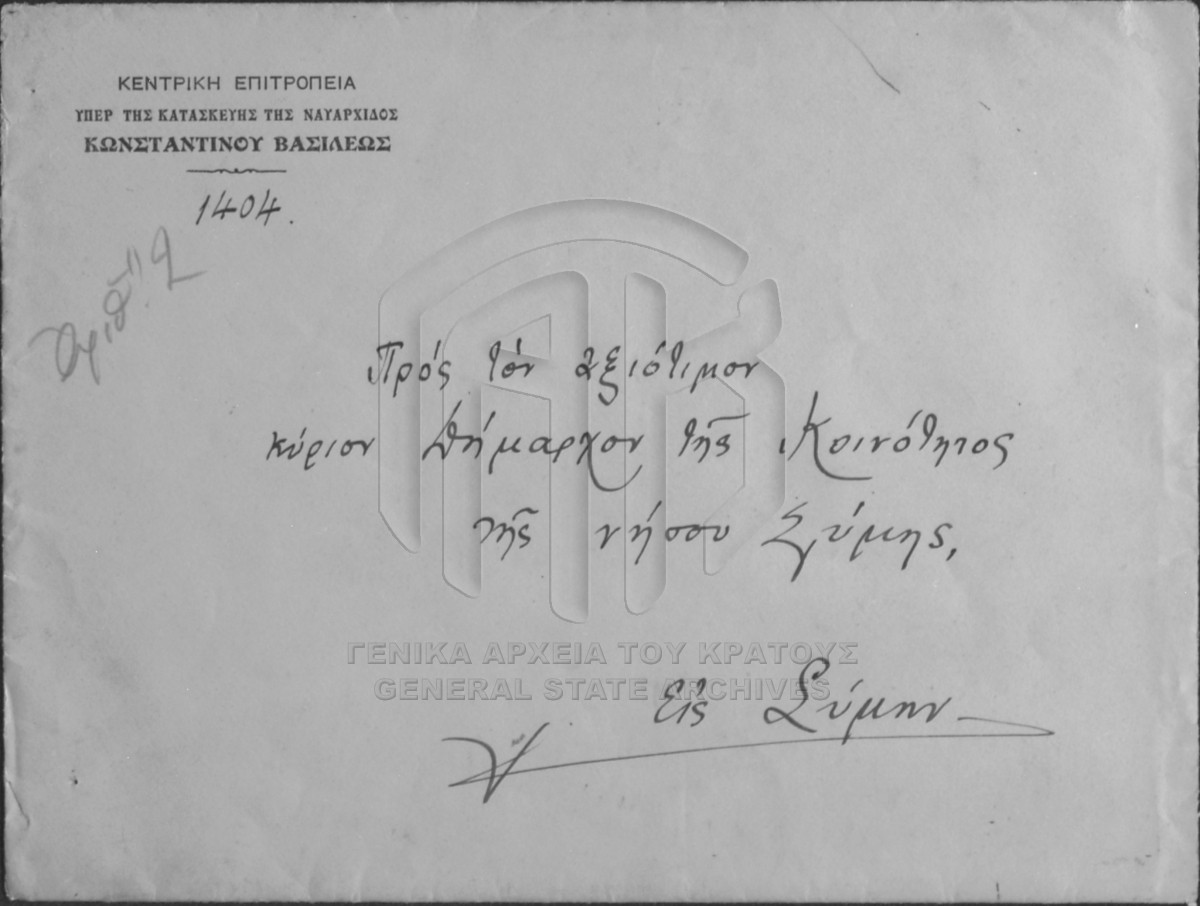 ΚΕΝΤΡΙΚΗ ΕΠΙΤΡΟΠΕΙΑ
ΥΠΕΡ ΤΗΣ ΚΑΤΑΣΚΕΥΗΣ ΤΗΣ ΝΑΥΑΡΧΙΔΟΣ
ΚΩΝΣΤΑΝΤΙΝΟΥ ΒΑΣΙΛΕΩΣ
1404.
Ἀριθ.
Πρός τόν ἀξιότιμον
κύριον Δήμαρχον τῆς Κοινότητος
τῆς νήσου Σύμης,
ΓΕΝΙΚΑ ΑΡΧΕΙΑ ΤΟΥ ΚΡΑΤΟΥΣ
GENERAL STATE ARCHIVES
Εἰς Σύμην